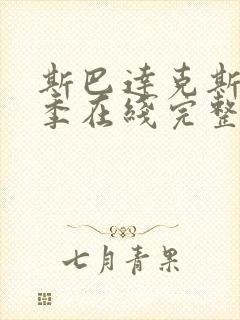 斯巴達克斯
季在綫完整
七月青果